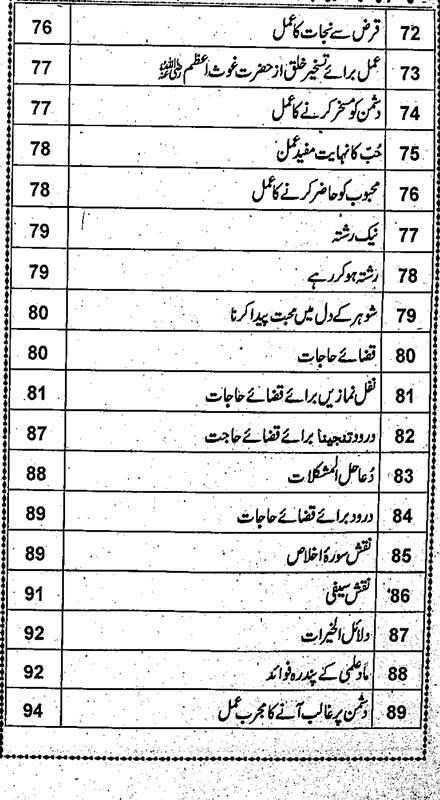 72 قرض سے نجات کا عمل 76
73 عمل برائے تسخیر خلق از حضرت غوث اعظم رضی اللہ عنہ 77
74 دشمن کو مسخر کرنے کا عمل 77
75 حُبّ کا نہایت مفید عمل 78
76 محبوب کو حاضر کرنے کا عمل 78
77 نیک رشتہ 79
78 رشتہ ہو کر رہے 79
79 شوہر کے دل میں محبت پیدا کرنا 80
80 قضائے حاجات 80
81 نفل نمازیں برائے قضائے حاجات 81
82 درود تنجینا برائے قضائے حاجت 87
83 دُعا حل المشکلات 88
84 درود برائے قضائے حاجات 89
85 نقش سورۂ اخلاص 89
86 نقش سیفی 91
87 دلائل الخیرات 92
88 کے پندرہ فوائد 92
89 دشمن پر غالب آنے کا مجرب عمل 94